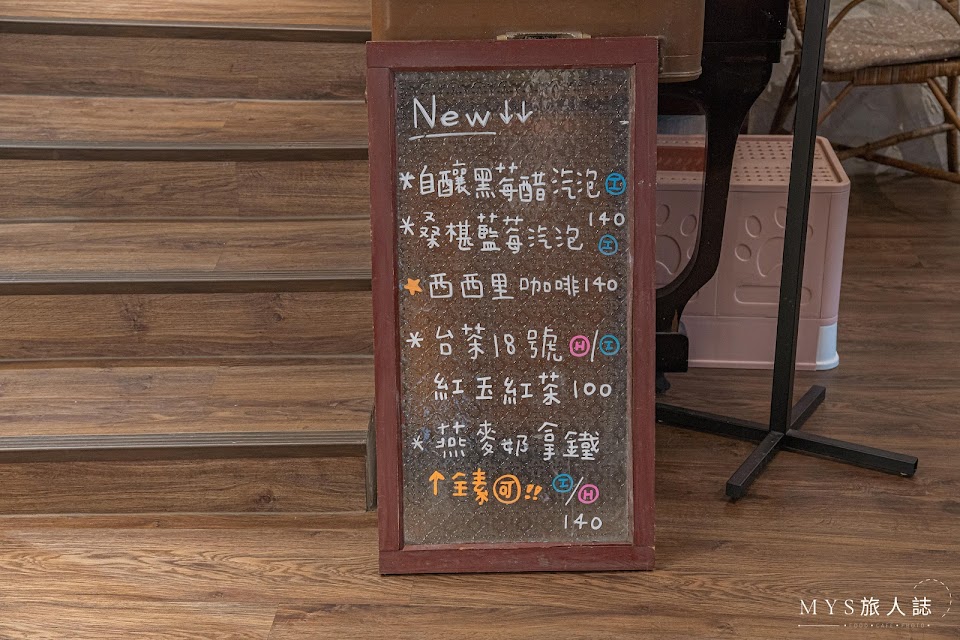 New↓↓
*自釀黑莓醋汽泡 I
140
*桑椹藍莓汽泡 I
★西西里咖啡140
*台茶18號 H/I
紅玉紅茶100
*燕麥奶拿鐵
↑全素可!! I/H
140
MYS旅人誌
•FOOD•CAFE•PHOTO•